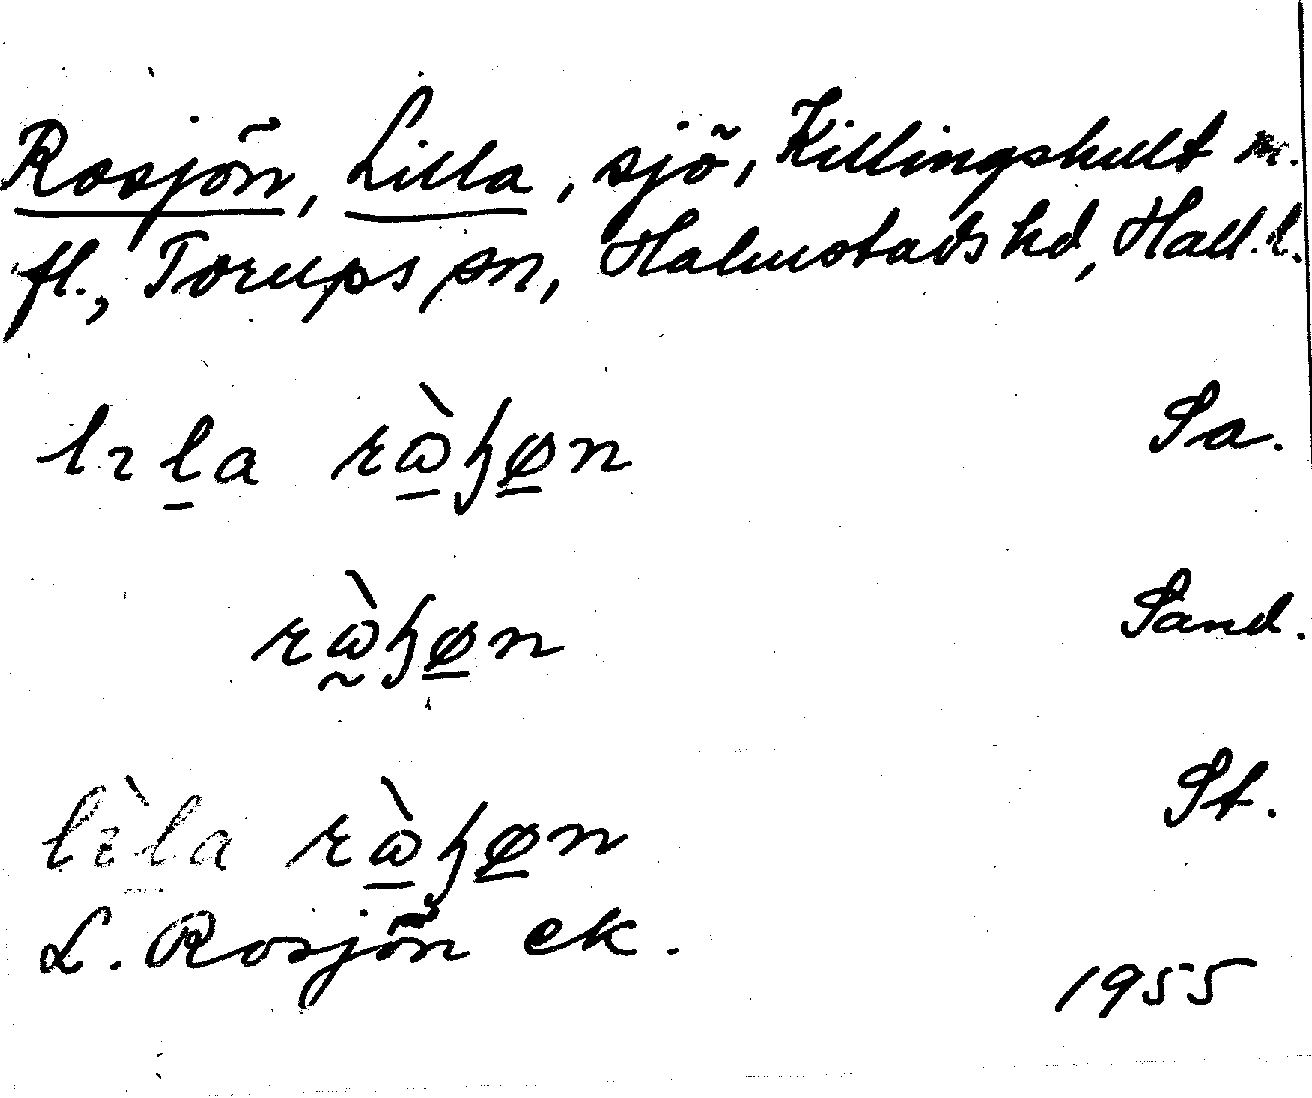 Rosjön, Lilla, sjö, Killingshult m.
fl., Torups sn, Halmstads hd, Hall. l.
lɪl̠a rὼ̠ɧø̠n Sa.
rὼ̰ɧø̠n Sand.
lɪ̀l̠a rὼ̠ɧø̠n St.
L. Rosjön ek.
1955